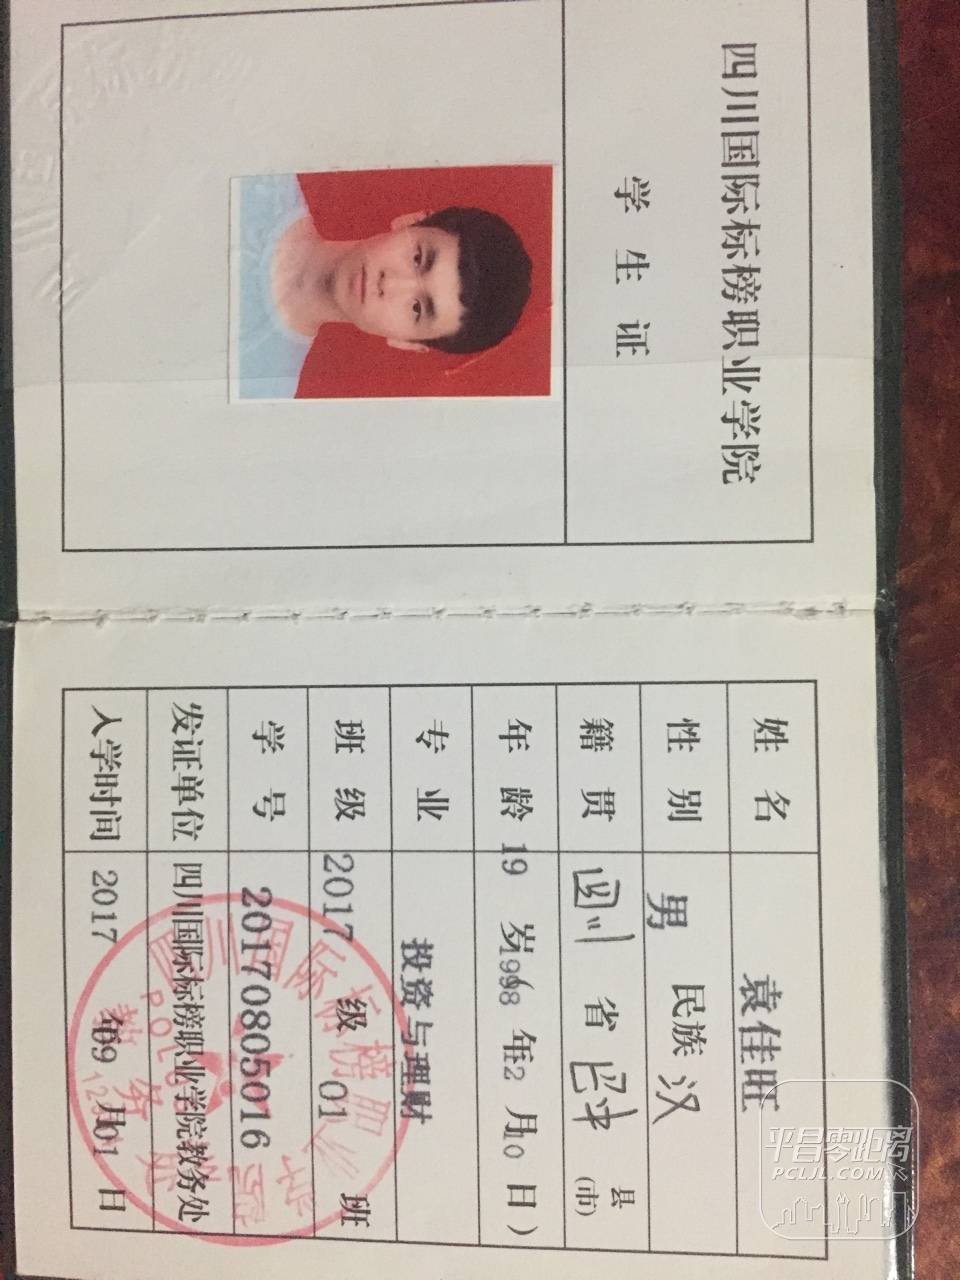 四川国际标榜职业学院
学生证
姓名 袁佳旺
性别 男 民族 汉
籍贯 四川 省 巴中 县(市)
年龄 19 岁(1998 年12 月10 日)
专业 投资与理财
班级 2017 级 01 班
学号 20170805016
发证单位 四川国际标榜职业学院教务处
入学时间 2017 年09 月01 日
四川国际标榜职业学院
教务处
平昌零距离
PCLJL.COM